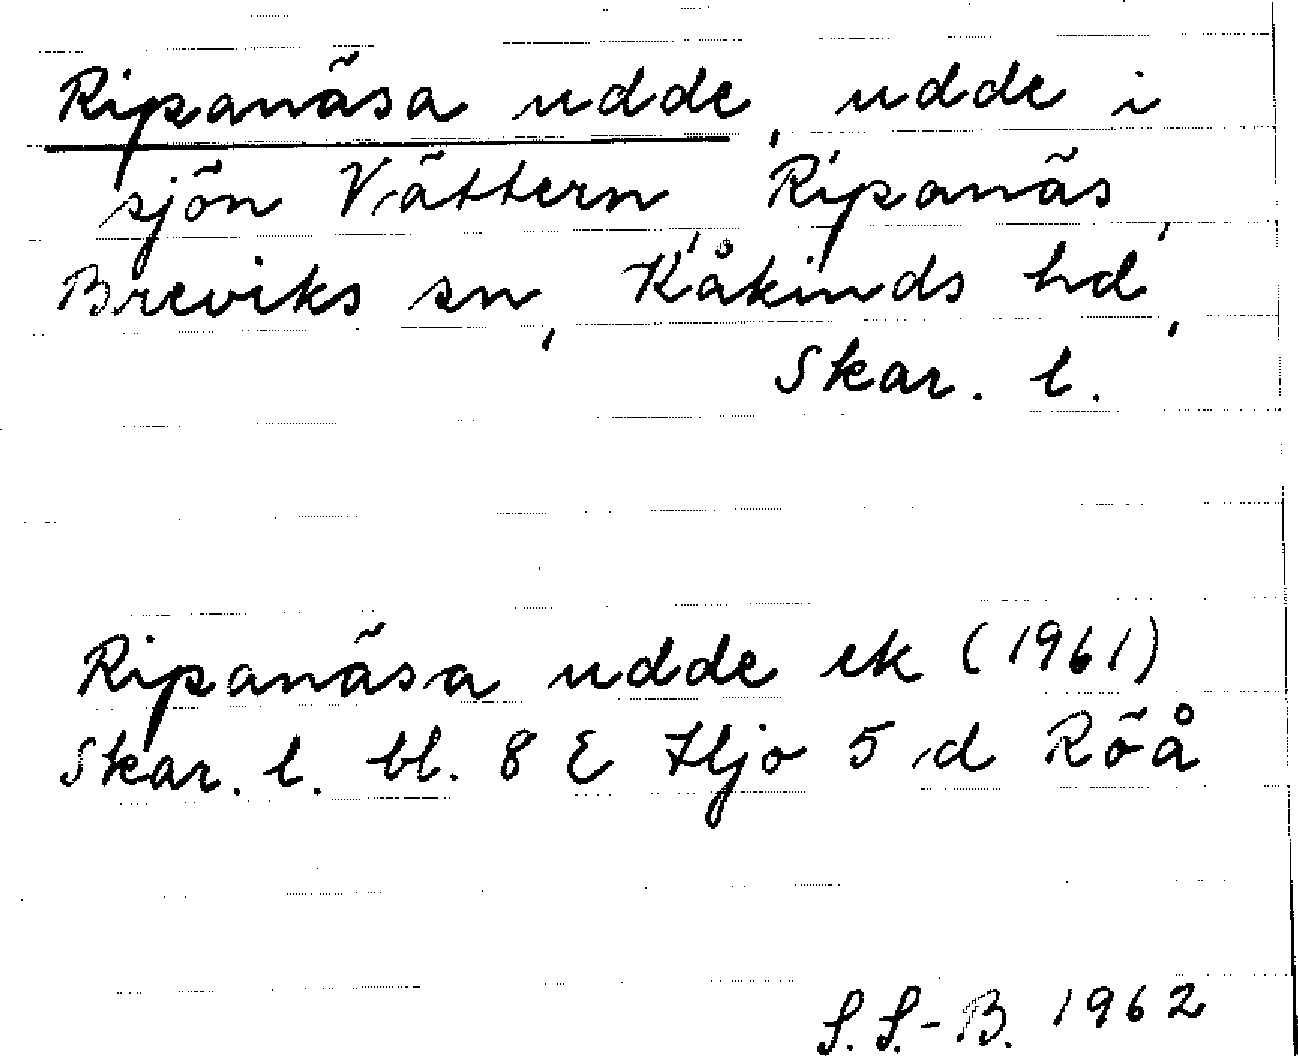 Ripanäsa udde, udde i
sjön Vättern, Ripanäs,
Breviks sn, Kåkinds hd,
Skar. l.
Ripanäsa udde ek (1961)
Skar. l. bl. 8 E Hjo 5 d Röå
S. S.-B. 1962